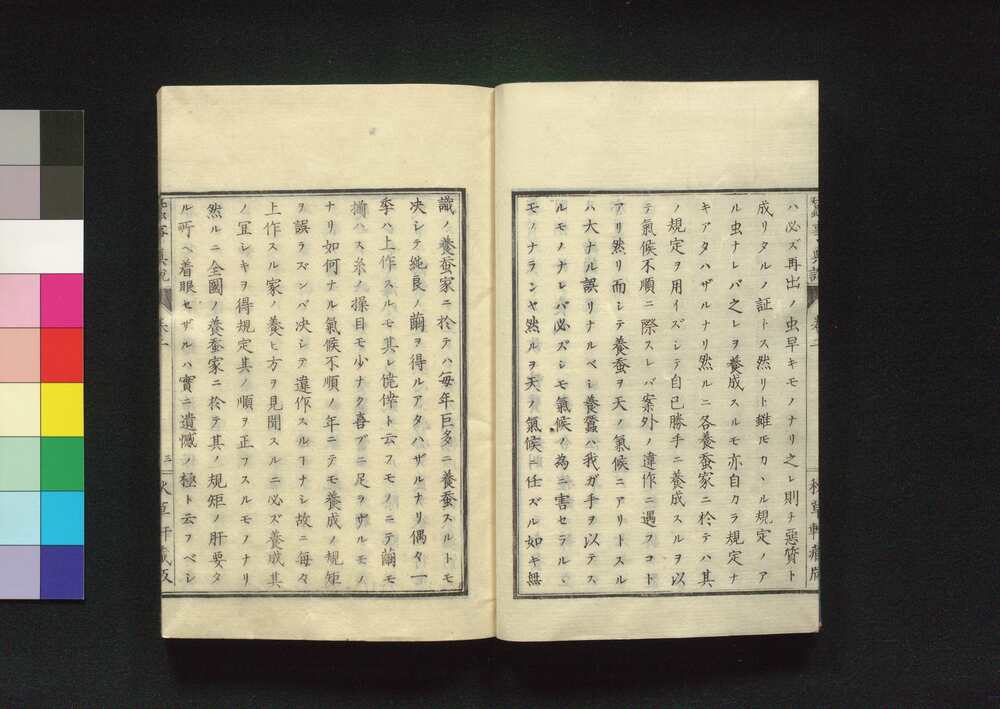 ハ必ズ再出ノ虫早キモノナリ之レ則チ惡質ト
成リタルノ証トス然リト雖モカヽル規定ノア
ル虫ナレバ之レヲ養成スルモ亦自カラ規定ナ
キアタハザルナリ然ルニ各養蚕家ニ於テハ其
ノ規定ヲ用イズシテ自己勝手ニ養成スルヲ以
テ氣候不順ニ際スレバ案外ノ違作ニ遇フコト
アリ然リ而シテ養蚕ヲ天ノ氣候ニアリトスル
ハ大ナル誤リナルベシ養蠶ハ我ガ手ヲ以テス
ルモノナレバ必ズシモ氣候ノ為ニ害セラルヽ
モノナランヤ然ルヲ天ノ氣候ニ任ズル如キ無
識ノ養蚕家ニ於テハ毎年巨多ニ養蚕スルトモ
决シテ純良ノ繭ヲ得ルアタハザルナリ偶々一
季ハ上作スルモ其レ僥倖ト云フモノニテ繭モ
揃ハス糸ノ操目モ少ナク喜ブニ足ヲザルモノ
ナリ如何ナル氣候不順ノ年ニテモ養成ノ規矩
ヲ誤ラズンバ决シテ違作スルヿナシ故ニ毎々
上作スル家ノ養ヒ方ヲ見聞スルニ必ズ養成其
ノ宜シキヲ得規定其ノ順ヲ正フスルモノナリ
然ルニ全國ノ養蚕家ニ於テ其ノ規矩ノ肝要タ
ル所ヘ着眼セザルハ實ニ遺憾ノ極ト云フベシ